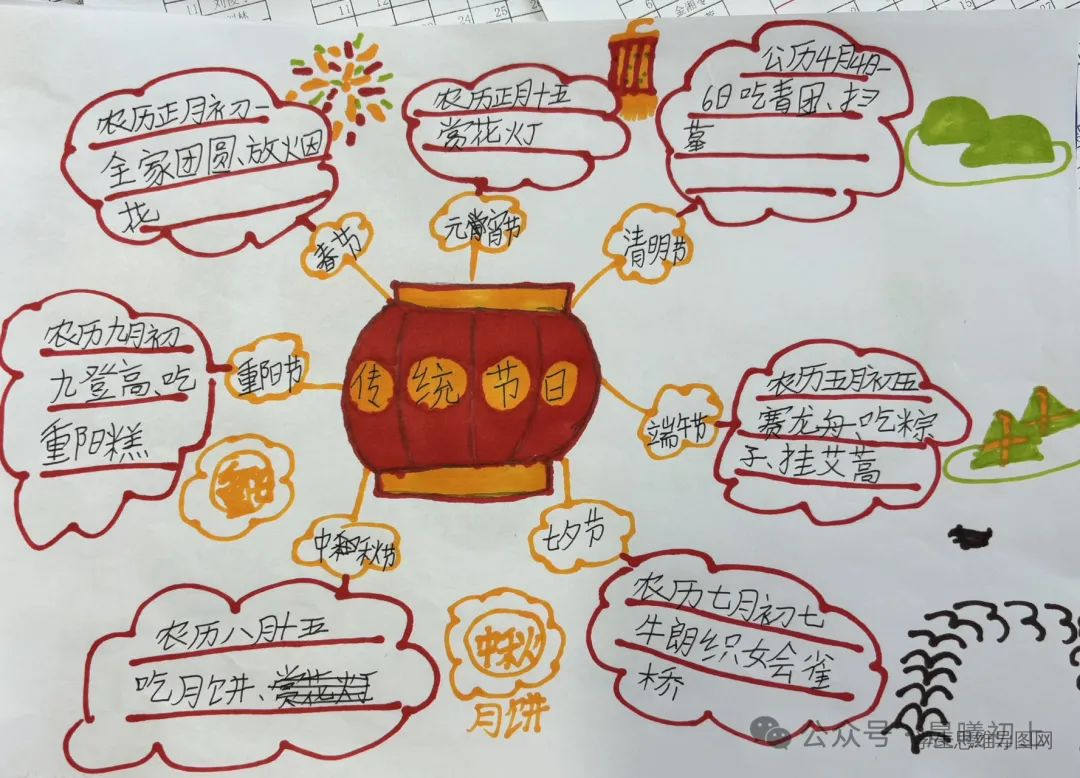 农历正月初一
全家团圆、放烟
花
春节
农历正月十五
赏花灯
元宵节
公历4月4日-
6日吃青团、扫
墓
清明节
传统节日
农历九月初
九登高、吃
重阳糕
重阳节
农历五月初五
赛龙舟、吃粽
子、挂艾蒿
端午节
中秋节
农历八月十五
吃月饼、赏花灯
中秋
月饼
七夕节
农历七月初七
牛朗织女会雀
桥
11
12
24
25
公众号
星曦初上
思维导图网